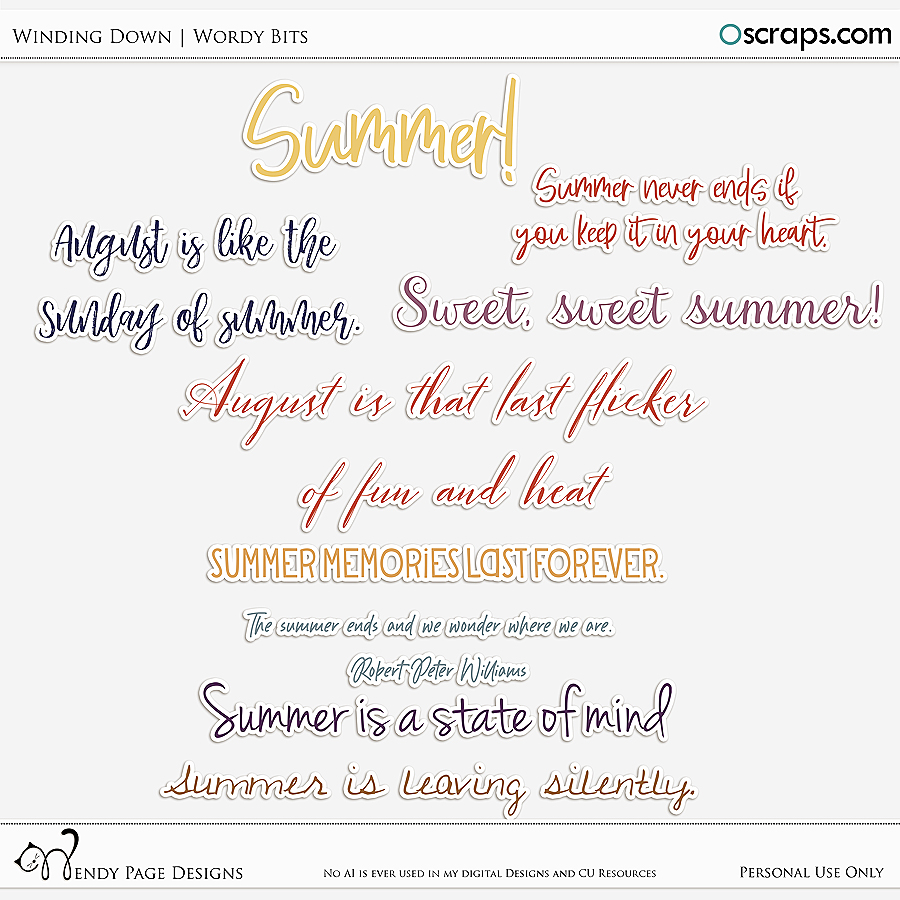 Winding Down | Wordy Bits
Oscraps.com
Summer!
Summer never ends if
you keep it in your heart.
August is like the
sunday of summer.
Sweet, sweet summer!
August is that last flicker
of fun and heat
SUMMER MEMORiES LaST FOREVER.
The summer ends and we wonder where we are.
Robert Peter Williams
Summer is a state of mind
Summer is leaving silently.
Wendy Page Designs
No AI is ever used in my digital Designs and CU Resources
Personal Use Only